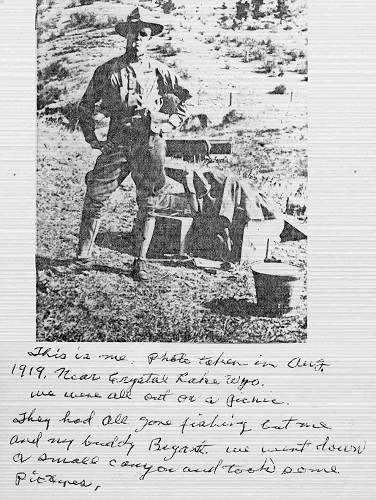 This is me. Photo taken in Aug,
1919. Near Crystal Lake Wyo.
we were all out on a picnic.
They had all gone fishing but me
and my buddy Bryant. we went down
a small canyon and took some
Pictures,